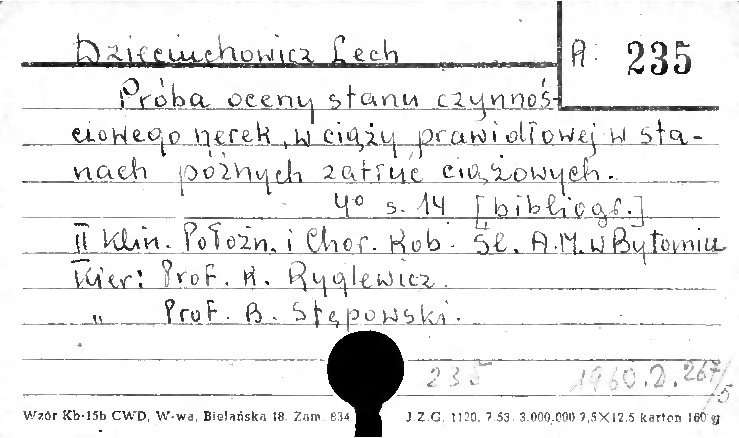 Dzieciuchowicz Lech
A: 235
Próba oceny stanu czynnoś-
ciowego nerek, w ciąży prawidłowej w sta-
nach późnych zatruć ciążowych.
4° s. 14 [bibliogr.]
II Klin. Położn. i Chor. Kob. Śl. A.M. w Bytomiu
Kier: Prof. K. Ryglewicz.
" Prof. B. Stępowski.
235 1960.D.267/5
Wzór Kb-15b CWD, W-wa, Bielańska 18. Zam. 834 J.Z.G. 1120. 7.53. 3.000.000 7,5×12,5 karton 160 g